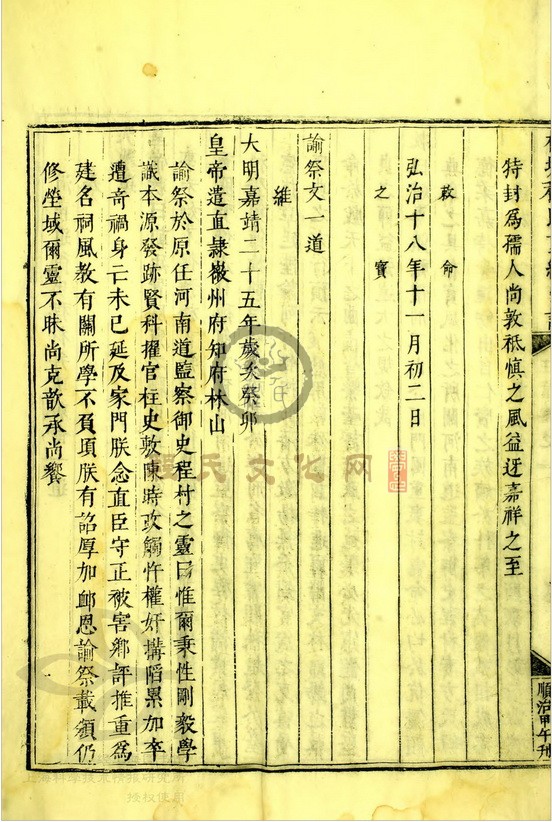 順治甲午刊
特封為孺人尚敦祗慎之風益迓嘉祥之至
敕命
弘治十八年十一月初二日
之寶
諭祭文一道
維
大明嘉靖二十五年歲次癸卯
皇帝遣直隷徽州府知府林山
諭祭於原任河南道監察御史程村之靈曰惟爾秉性剛毅學
識本源發跡賢科擢官柱史敷陳時政觸忤權奸搆陷累加卒
遭奇禍身亡未已延及家門朕念直臣守正被害鄉評推重為
建名祠風教有關所學不負項朕有詔厚加卹恩諭祭載頒仍
修塋域爾靈不昧尚克歆承尚饗
氏文化网
授权使用